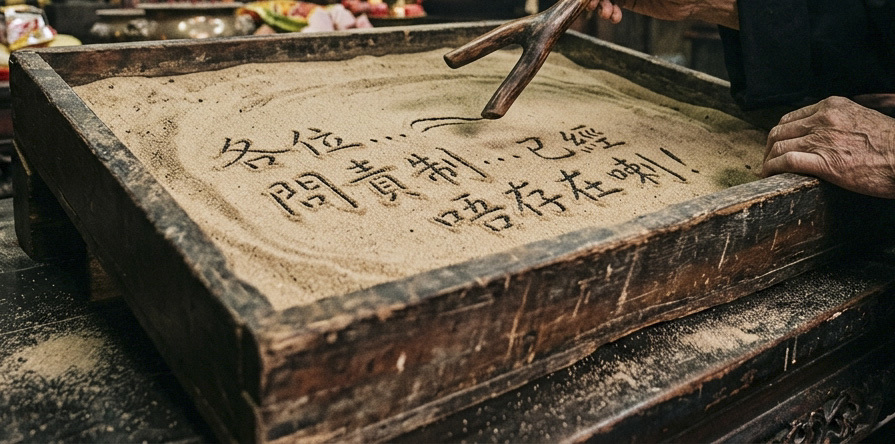 各位...
問責制...已經
唔存在喇!